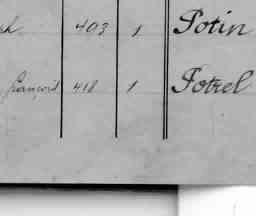 403 1 Potin
françois 418 1 Potrel